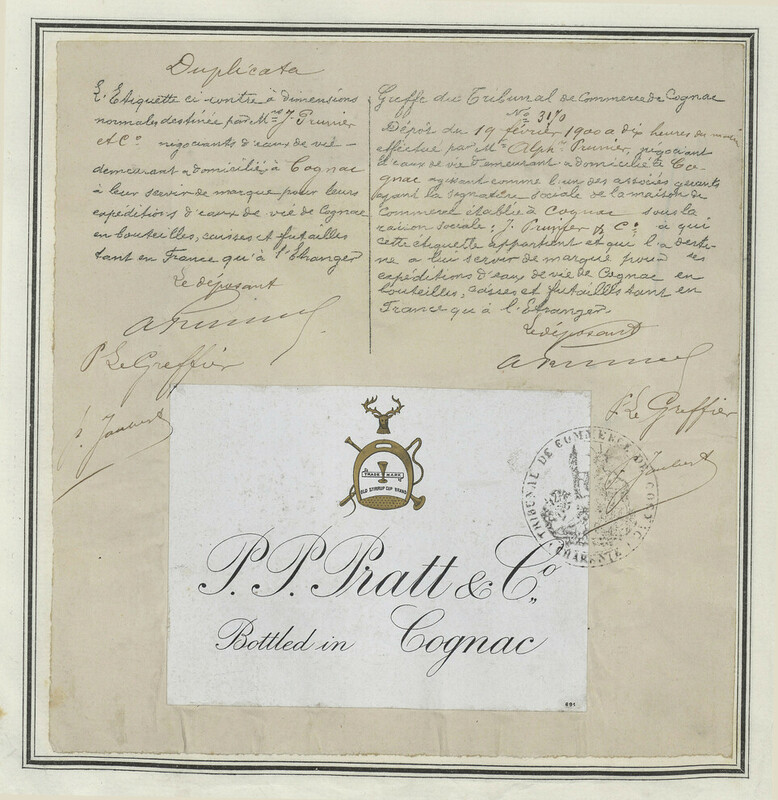 Duplicata
L'Etiquette ci contre à dimensions
normales destinée par Mrs J. Prunier
et Co négociants d'eaux de vie
demeurant & domiciliés à Cognac
à leur servir de marque pour leurs
expéditions d'eaux de vie de Cognac
en bouteilles, caisses et futailles
tant en France qu'à l'Etranger
Le déposant
A Prunier
P Le Greffier
J. Joubert
Greffe du Tribunal de Commerce de Cognac
No 3170
Dépôt du 19 février 1900 à dix heures du matin
effectué par Mr Alphse Prunier, négociant
d'eaux de vie demeurant & domicilié à Co-
gnac agissant comme l'un des associés gérants
ayant la signature sociale de la maison de
Commerce établie à Cognac sous la
raison sociale: J. Prunier & Co à qui
cette étiquette appartient et qui l'a desti-
né à lui servir de marque pour ses
expéditions d'eaux de vie de Cognac en
bouteilles, caisses et futailles tant en
France qu'à l'Etranger
Le déposant
A Prunier
P Le Greffier
J. Joubert
TRIBUNAL DE COMMERCE DE COGNAC
CHARENTE
TRADE MARK
OLD STIRRUP CUP BRAND
P. P. Pratt & Co.,
Bottled in Cognac